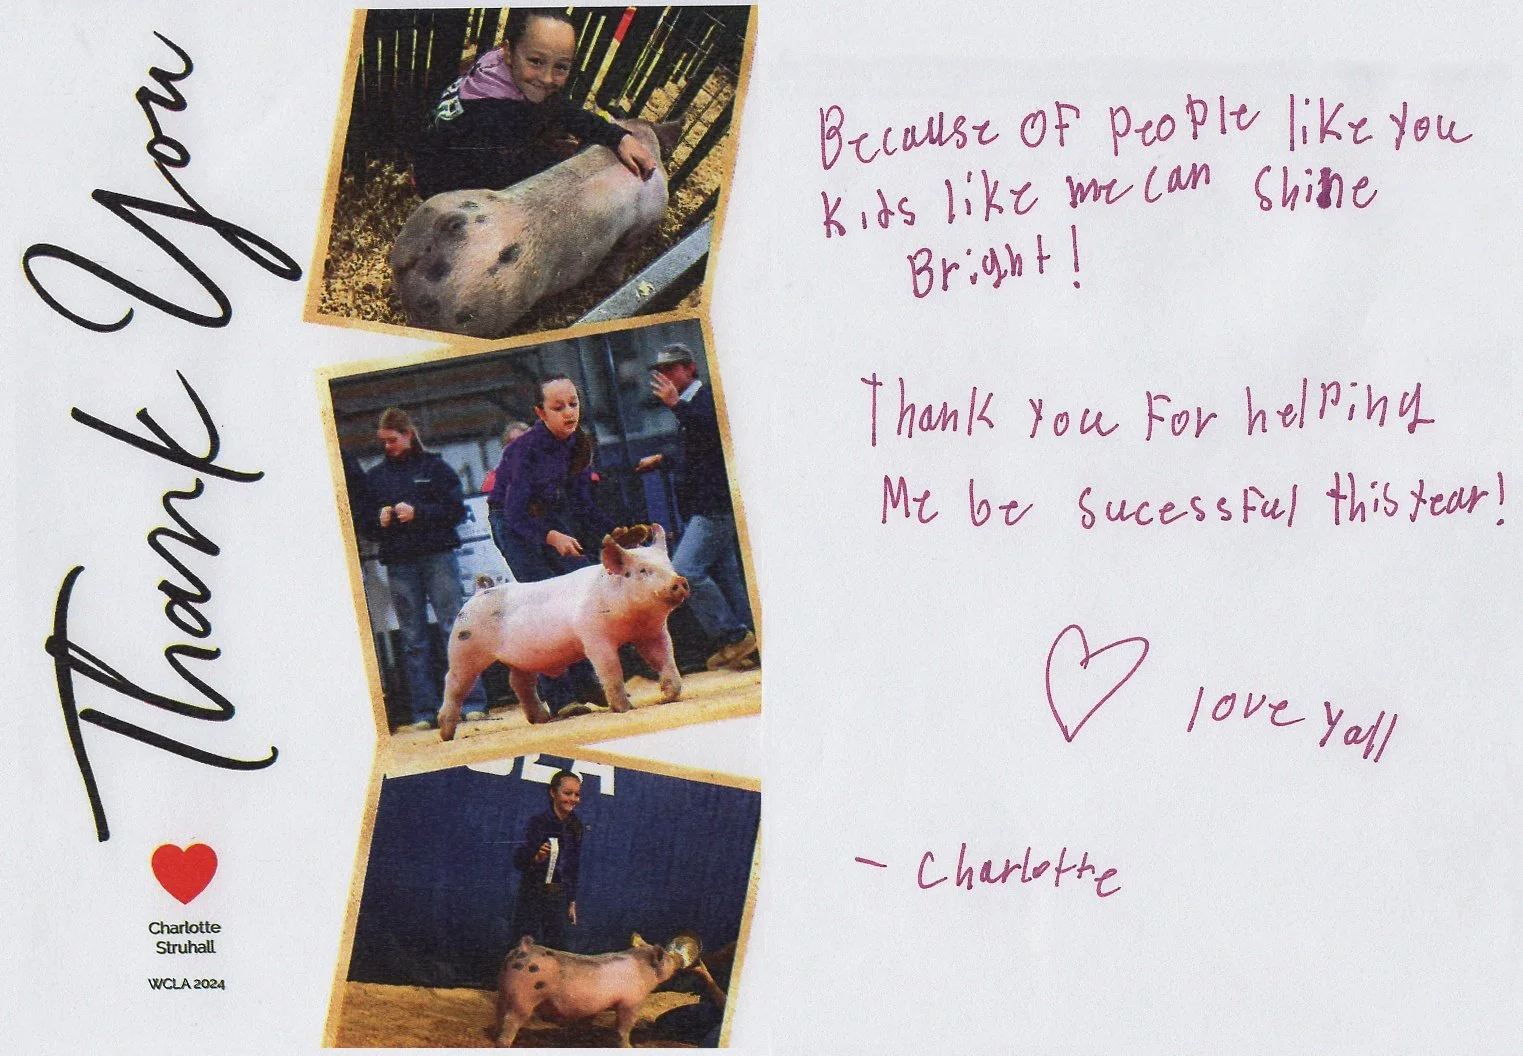 Thank You
Charlotte
Struhall
WCLA 2024
Because OF people like you
kids like me can shine
Bright!
Thank you For helping
Me be sucessful this year!
love yall
- Charlotte